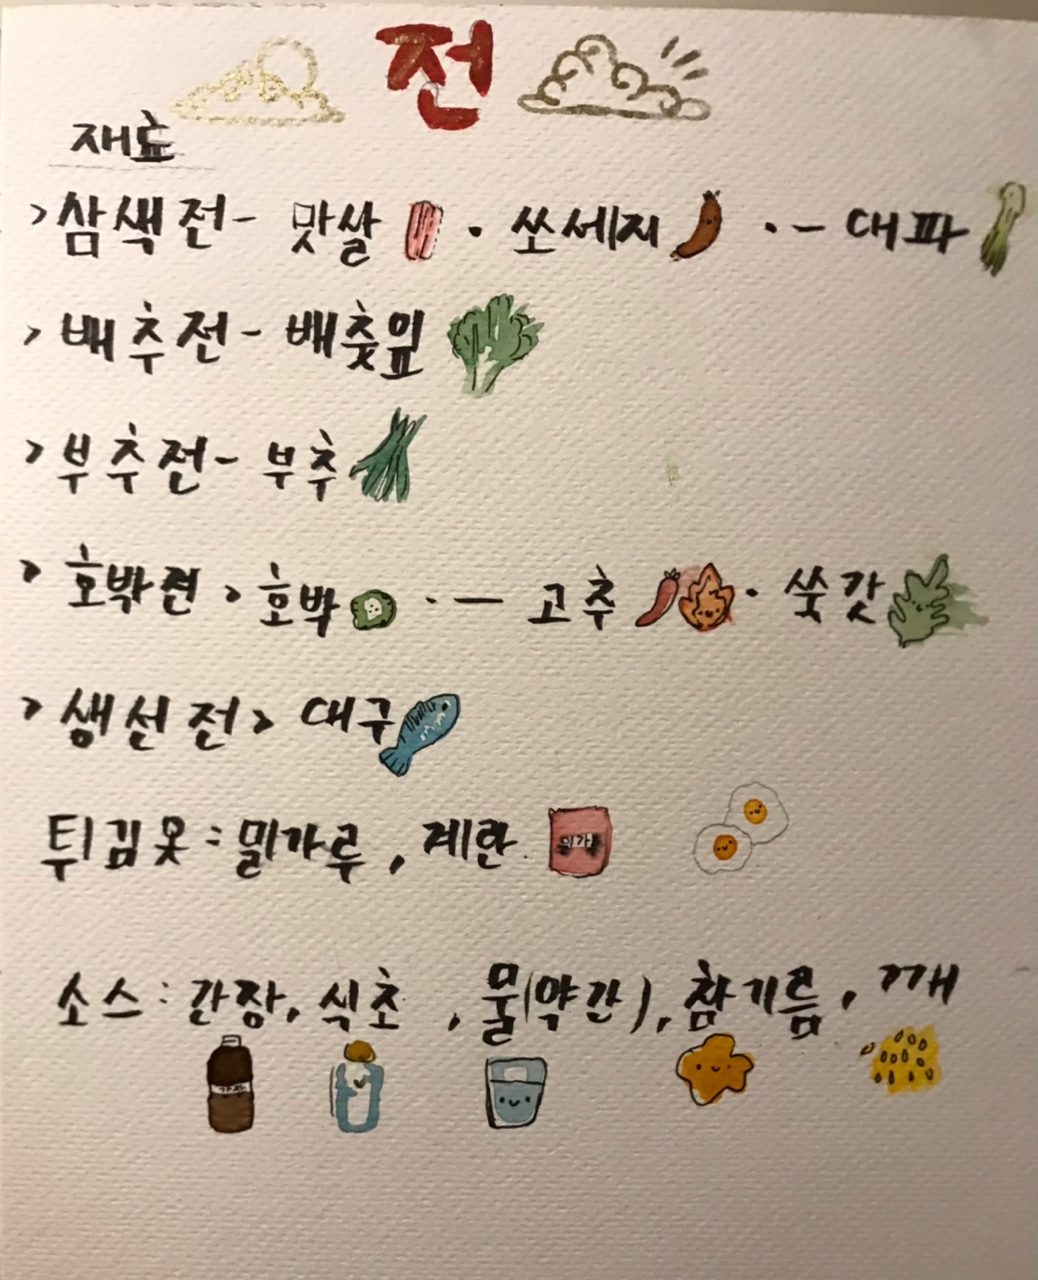 전
재료
>삼색전- 맛살 · 쏘세지 ·- 대파
>배추전- 배춧잎
>부추전- 부추
>호박전 > 호박 ·- 고추 · 쑥갓
>생선전> 대구
튀김옷:밀가루, 계란
소스: 간장, 식초, 물(약간), 참기름, 깨